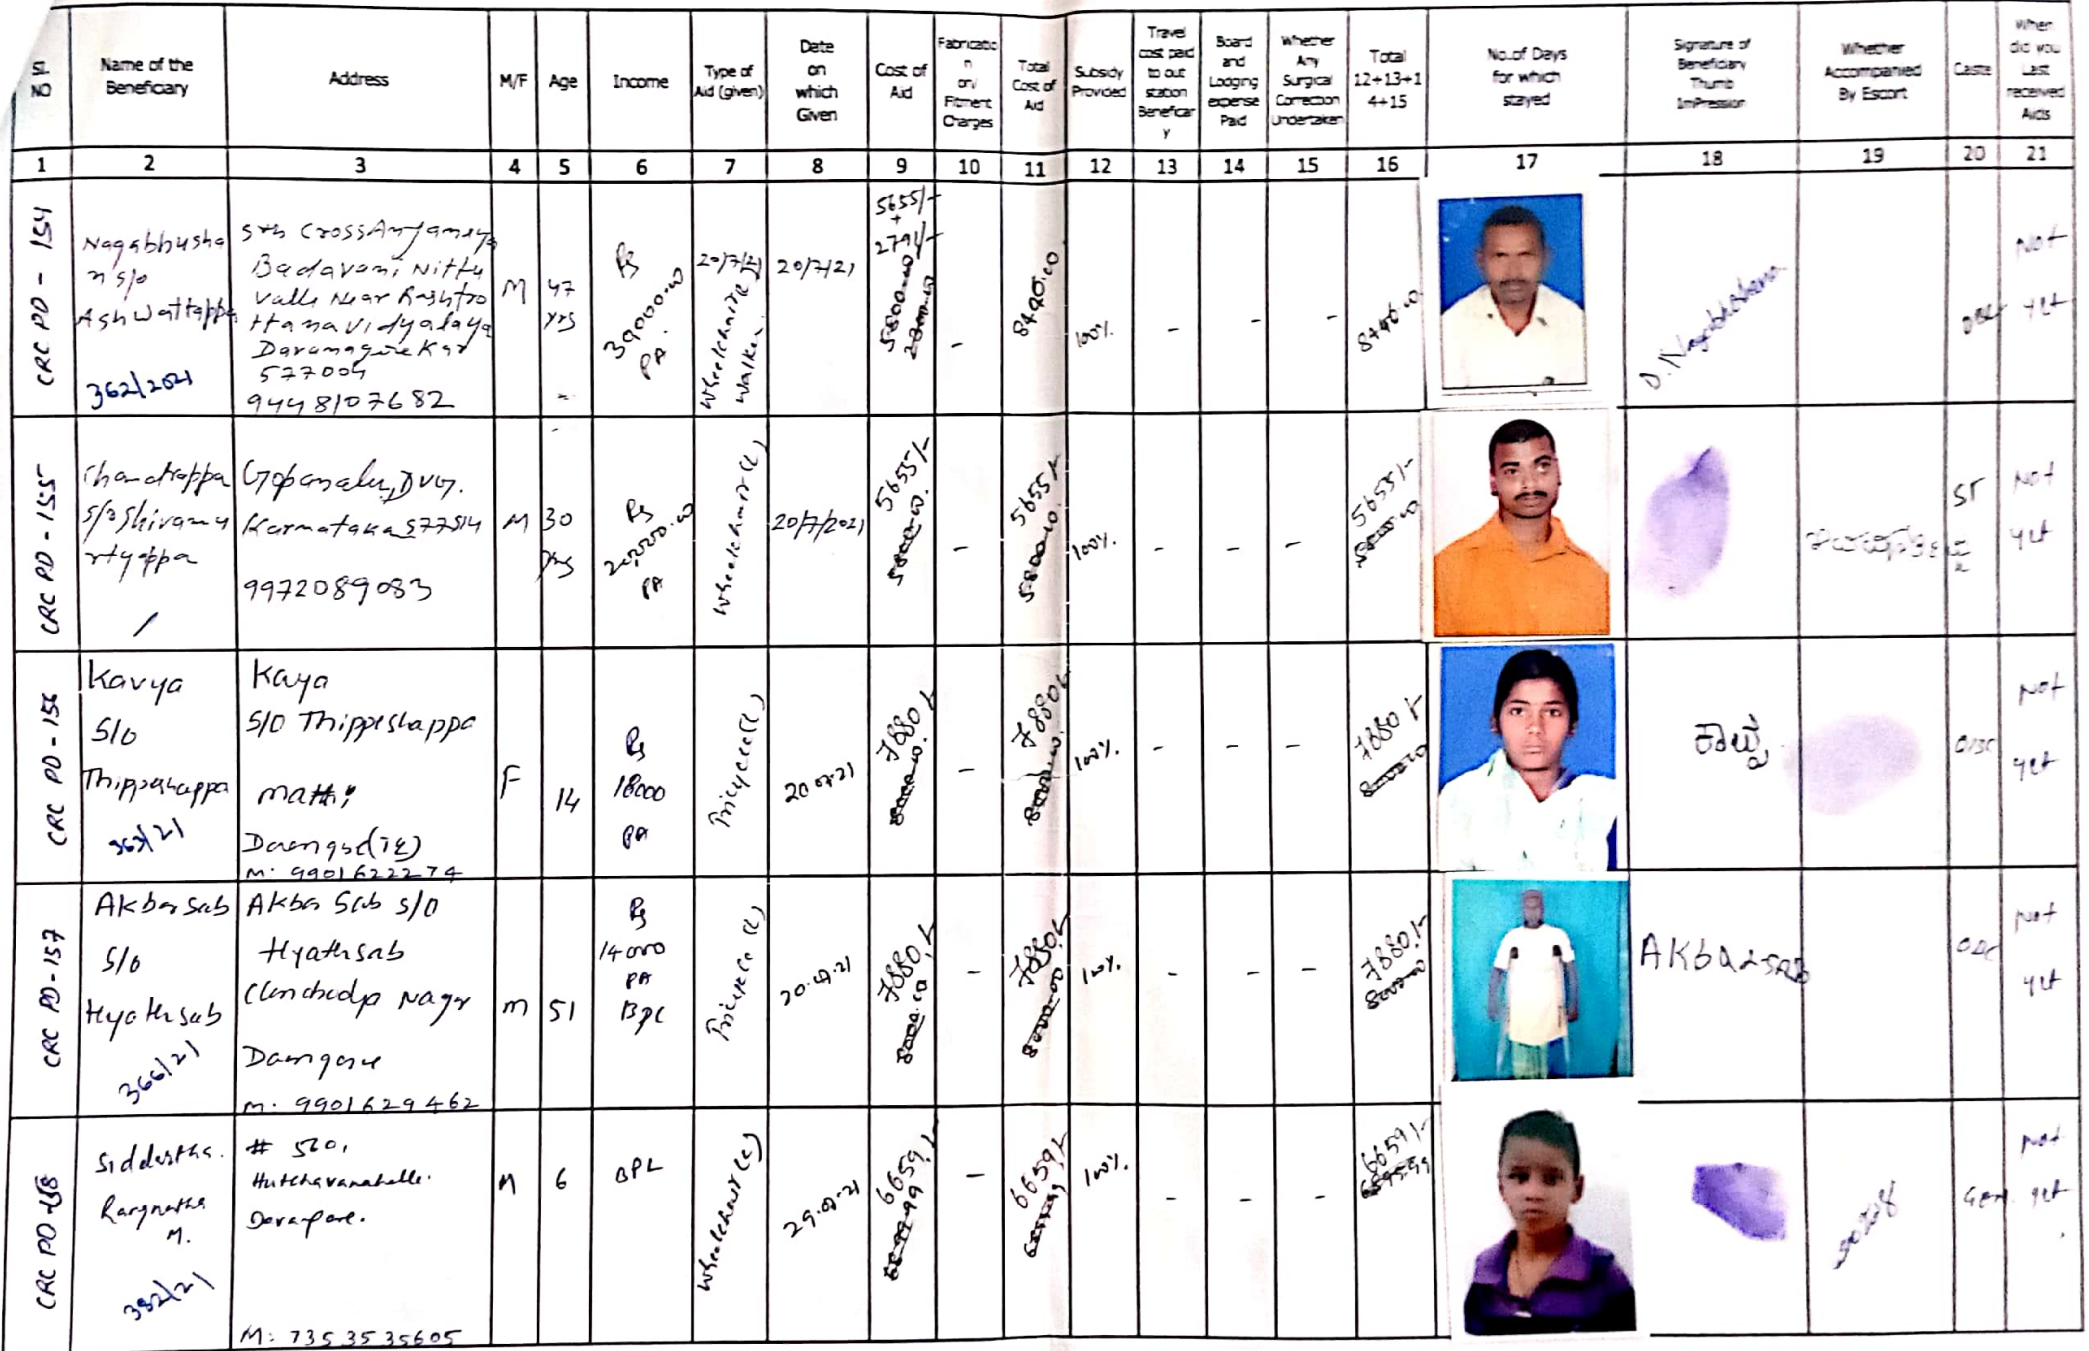 SL NO
Name of the Beneficiary
Address
M/F
Age
Income
Type of Aid (given)
Date on which Given
Cost of Aid
Fabricatio n on/ Fitment Charges
Total Cost of Aid
Subsidy Provided
Travel cost paid to out station Beneficar y
Board and Lodging expense Paid
Whether Any Surgical Correction Undertaken
Total 12+13+1 4+15
No.of Days for which stayed
Signature of Beneficiary Thumb ImPression
Whether Accompanied By Escort
Caste
When did you Last received Aids
1 2 3 4 5 6 7 8 9 10 11 12 13 14 15 16 17 18 19 20 21
CRC PD - 154
Nagabhusha
n s/o
Ashwattappa
362/2021
5th Cross Anjaneya
Badavani Nittu
Valli Near Rashtro
Hana vidyalaya
577004
9448107682
M
47
yrs
Rs
39000.00
PA.
20/7/21
Wheelchair(L)
Walker.
20/7/21
5655/-
+
2791/-
5800.00
-
100%
-
-
-
8446.00
D. Nagabhushana
OBC
Not
yet
CRC PD - 155
Chandrappa
s/o Shivamu
rtyappa
577514
9972089083
M
30
yrs
Rs
PA
Wheelchair(L)
20/7/2021
5655/-
5800.00.
-
5655/-
5800.00.
100%.
-
-
-
5655/-
5800.00
ST
Not
yet
CRC PD - 156
Kavya
S/o
Thippeshappa
363/21
Kaya
S/O Thippeshappa
Matti,
M: 9901622274
F
14
Rs
18000
PA
Tricycle(L)
20.07.21
7880/-
8000.00.
-
7880/-
8000.00
100%.
-
-
-
7880/-
8000.00
ಕಾವ್ಯ
OBC
Not
yet
CRC PD - 157
Akbar Sab
S/o
Hyathsab
366/21
Akbar Sab S/O
Hyathsab
Nagr
M: 9901629462
m
51
Rs
14000
PA
BPL
Tricycle (L)
20.07.21
7880/-
8000.00
-
7880/-
8000.00
100%.
-
-
-
7880/-
8000.00
Akbarsab
OBC
Not
yet
CRC PD - 158
Siddartha.
Rangnatha
M.
382/21
# 560,
M: 7353535605
M
6
BPL
Wheelchair(c)
29.07.21
6659/-
-
6659/-
100%.
-
-
-
6659/-
Gen.
Not
yet